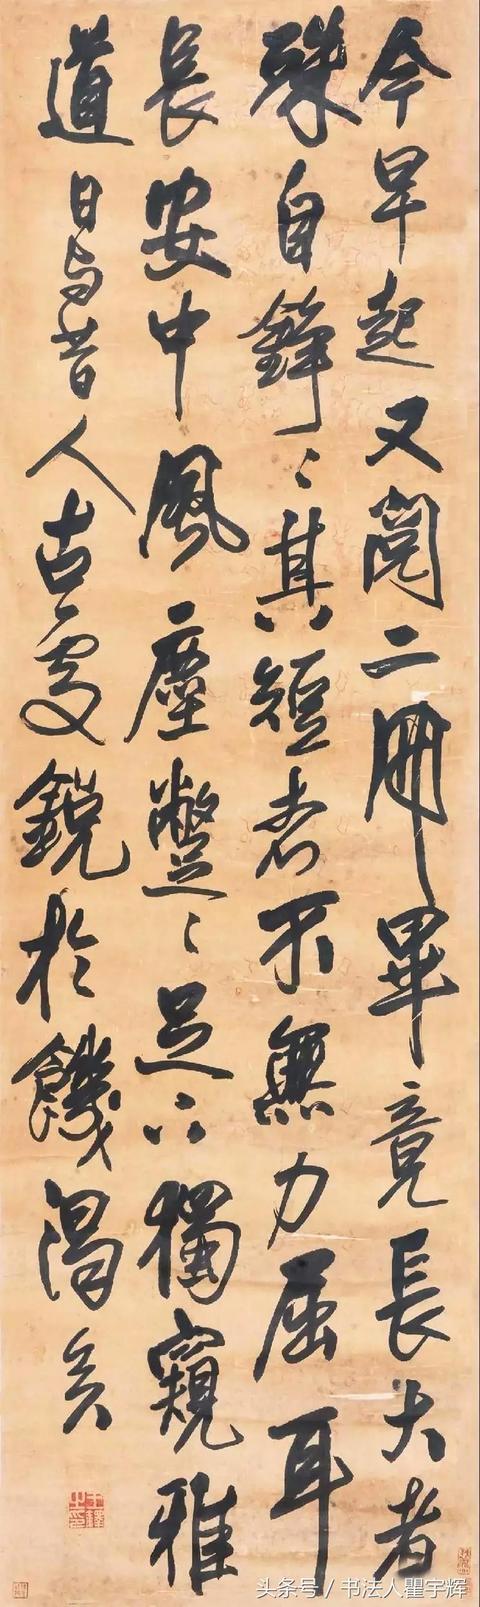 今早起又閱二冊畢竟長大者
殊自錚〻其短者不無力屈耳
長安中風塵蹩〻足下獨窺雅
道日与昔人古處銳於饑渴矣
王鐸之印
头条号 / 书法人瞿宇辉